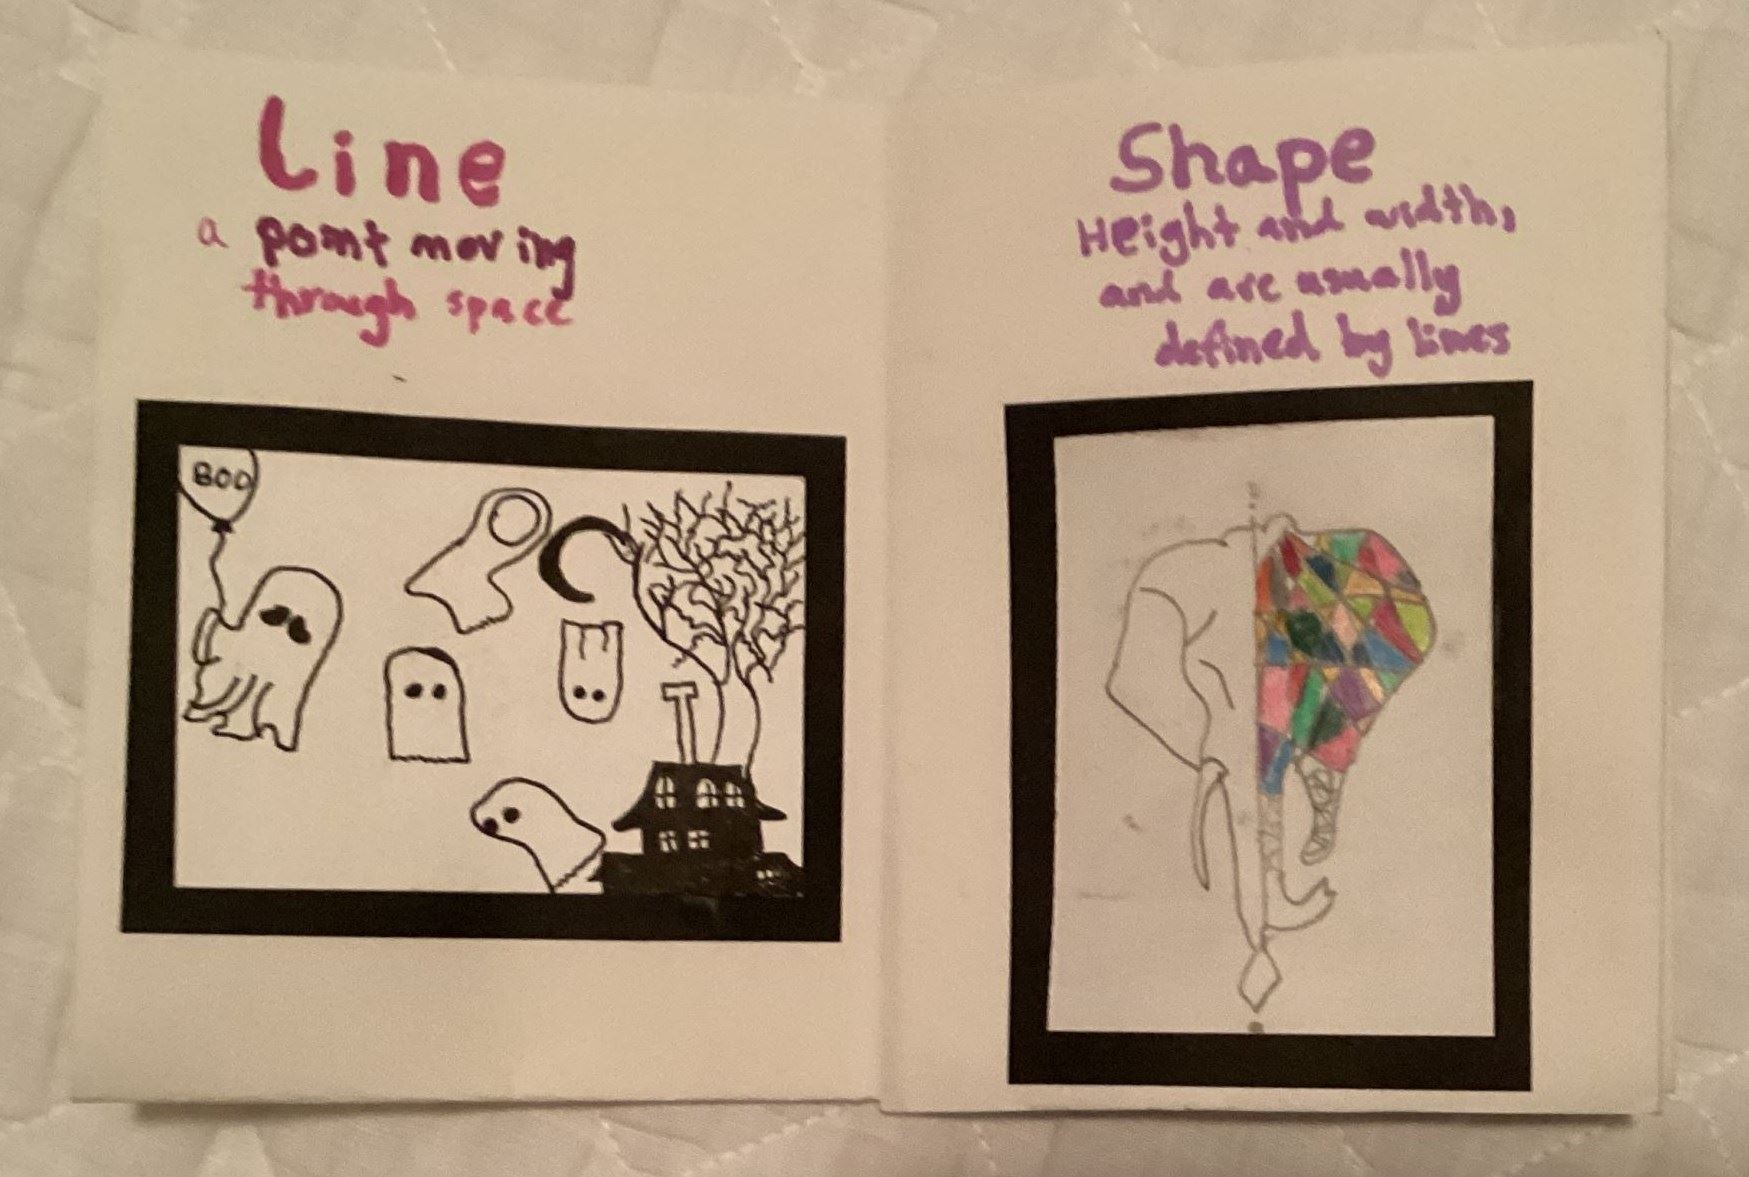 Line
a point moving
through space
BOO
Shape
Height and width,
and are usually
defined by lines